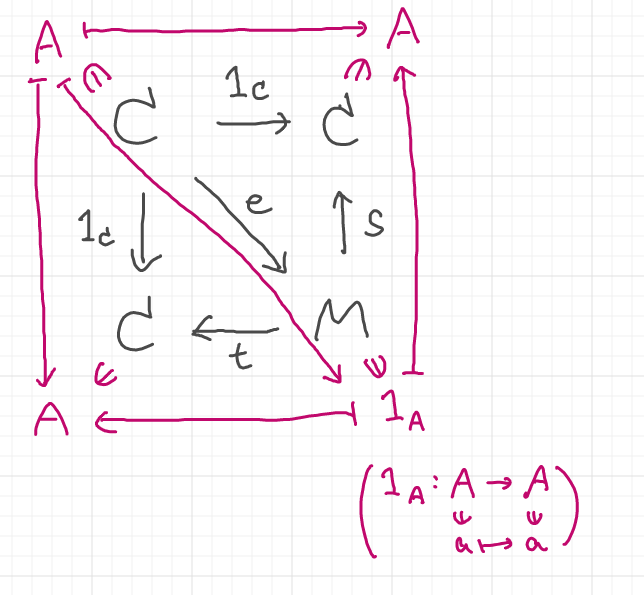 A ↦ A
∩ ∩
C 1c → C
1c ↓ e ↘ ↑ s
C ← t M
∈ ∈
A ↤ 1_A
( 1_A : A → A
a ↦ a )